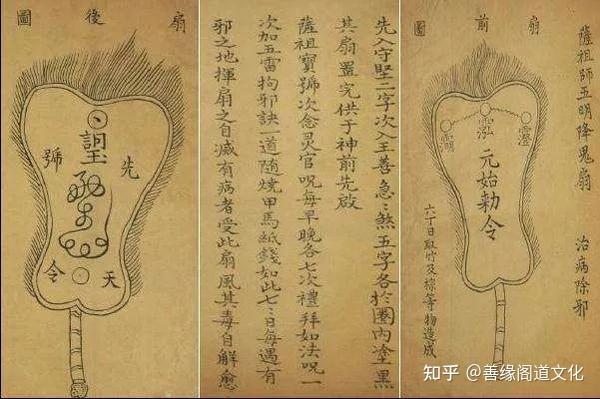 薩祖師五明降鬼扇 治病除邪
扇前圖
泓
元始勅令
六丁日取竹及棕等物造成
先入守堅二字次入王善急〻煞五字各於圈內塗黑
其扇置完供于神前先啟
薩祖寶號次念灵官咒每早晚各七次禮拜如法咒一
次加五雷拘邪訣一道随燒甲馬紙錢如此七〻日每遇有
邪之地揮扇之自滅有病者受此扇風其毒自解愈
扇後圖
先天
號令
知乎 @善缘阁道文化